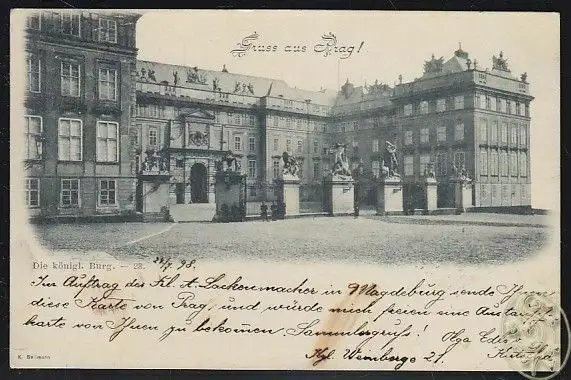 Gruss aus Prag!
Die königl. Burg. - 23.
24/7 98.
Im Auftrag des Kl. A. Lackenmacher in Magdeburg sende Ihnen
diese Karte von Prag, und würde mich freuen eine Austausch
karte von Ihnen zu bekommen. Sammlergruß!
Olga
Kgl. Weinberge 21.
K. Bellmann